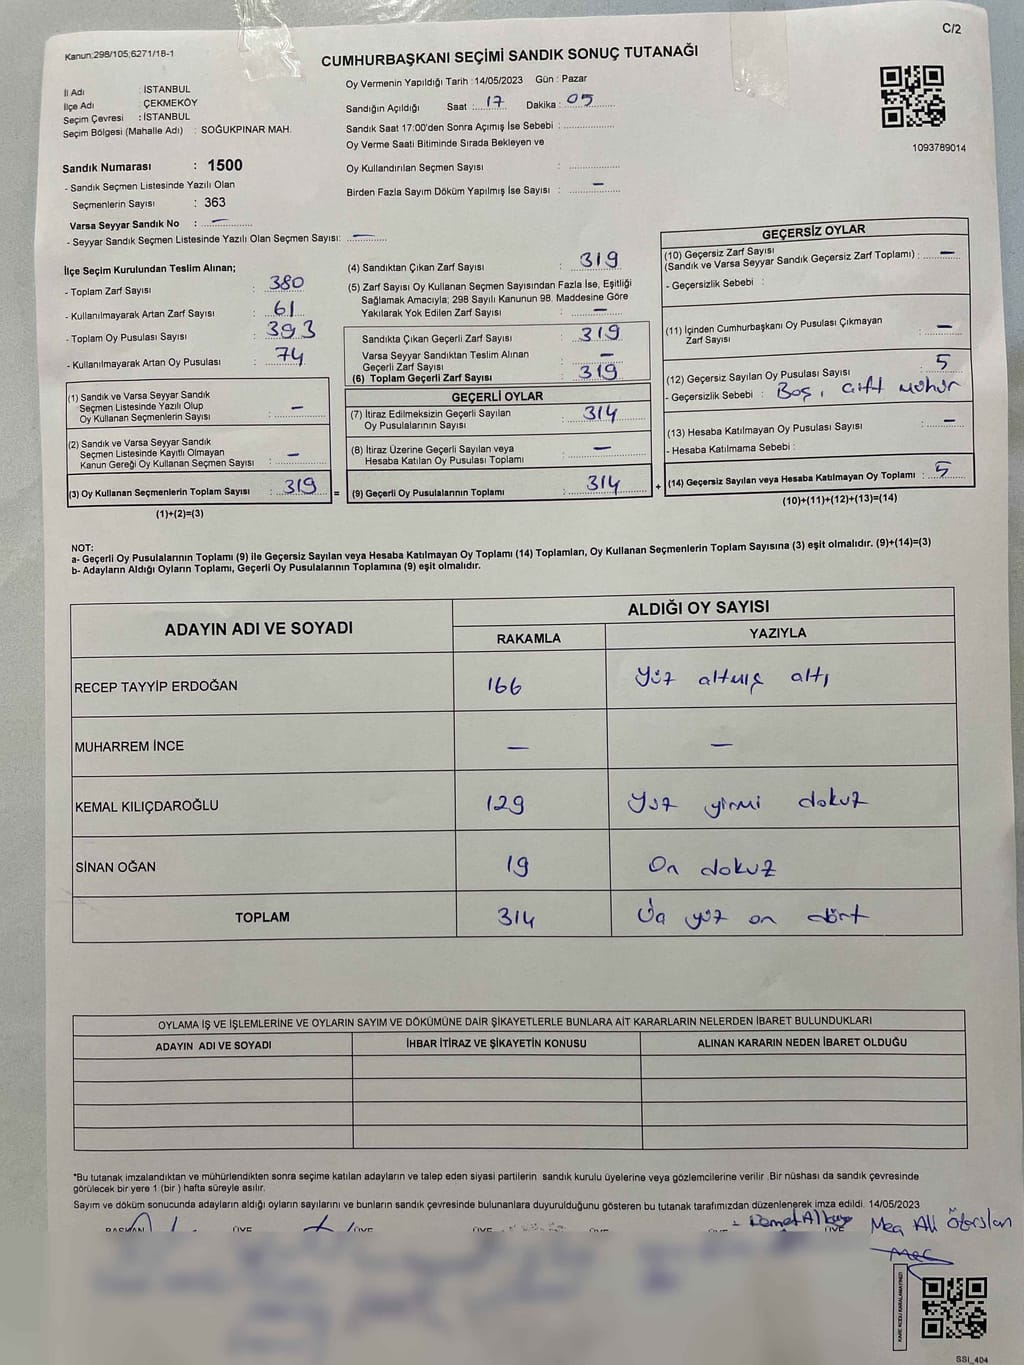 Kanun:298/105;6271/18-1
C/2
CUMHURBAŞKANI SEÇİMİ SANDIK SONUÇ TUTANAĞI
İl Adı : İSTANBUL
İlçe Adı : ÇEKMEKÖY
Seçim Çevresi : İSTANBUL
Seçim Bölgesi (Mahalle Adı) : SOĞUKPINAR MAH.
Oy Vermenin Yapıldığı Tarih :14/05/2023 Gün : Pazar
Sandığın Açıldığı Saat : 17 Dakika : 05
Sandık Saat 17:00'den Sonra Açımış İse Sebebi :
Oy Verme Saati Bitiminde Sırada Bekleyen ve
Oy Kullandırılan Seçmen Sayısı :
Birden Fazla Sayım Döküm Yapılmış İse Sayısı : —
1093789014
Sandık Numarası : 1500
- Sandık Seçmen Listesinde Yazılı Olan
Seçmenlerin Sayısı : 363
Varsa Seyyar Sandık No : —
- Seyyar Sandık Seçmen Listesinde Yazılı Olan Seçmen Sayısı: —
İlçe Seçim Kurulundan Teslim Alınan;
- Toplam Zarf Sayısı : 380
- Kullanılmayarak Artan Zarf Sayısı : 61
- Toplam Oy Pusulası Sayısı : 393
- Kullanılmayarak Artan Oy Pusulası : 74
(1) Sandık ve Varsa Seyyar Sandık
Seçmen Listesinde Yazılı Olup
Oy Kullanan Seçmenlerin Sayısı : —
(2) Sandık ve Varsa Seyyar Sandık
Seçmen Listesinde Kayıtlı Olmayan
Kanun Gereği Oy Kullanan Seçmen Sayısı : —
(3) Oy Kullanan Seçmenlerin Toplam Sayısı : 319
(1)+(2)=(3)
(4) Sandıktan Çıkan Zarf Sayısı : 319
(5) Zarf Sayısı Oy Kullanan Seçmen Sayısından Fazla İse, Eşitliği
Sağlamak Amacıyla; 298 Sayılı Kanunun 98. Maddesine Göre
Yakılarak Yok Edilen Zarf Sayısı : —
Sandıkta Çıkan Geçerli Zarf Sayısı : 319
Varsa Seyyar Sandıktan Teslim Alınan
Geçerli Zarf Sayısı : —
(6) Toplam Geçerli Zarf Sayısı : 319
GEÇERLİ OYLAR
(7) İtiraz Edilmeksizin Geçerli Sayılan
Oy Pusulalarının Sayısı : 314
(8) İtiraz Üzerine Geçerli Sayılan veya
Hesaba Katılan Oy Pusulası Toplamı : —
= (9) Geçerli Oy Pusulalarının Toplamı : 314
GEÇERSİZ OYLAR
(10) Geçersiz Zarf Sayısı
(Sandık ve Varsa Seyyar Sandık Geçersiz Zarf Toplamı) : —
- Geçersizlik Sebebi :
(11) İçinden Cumhurbaşkanı Oy Pusulası Çıkmayan
Zarf Sayısı : —
(12) Geçersiz Sayılan Oy Pusulası Sayısı : 5
- Geçersizlik Sebebi : Boş, çift mühür
(13) Hesaba Katılmayan Oy Pusulası Sayısı : —
- Hesaba Katılmama Sebebi :
+ (14) Geçersiz Sayılan veya Hesaba Katılmayan Oy Toplamı : 5
(10)+(11)+(12)+(13)=(14)
NOT:
a- Geçerli Oy Pusulalarının Toplamı (9) ile Geçersiz Sayılan veya Hesaba Katılmayan Oy Toplamı (14) Toplamları, Oy Kullanan Seçmenlerin Toplam Sayısına (3) eşit olmalıdır. (9)+(14)=(3)
b- Adayların Aldığı Oyların Toplamı, Geçerli Oy Pusulalarının Toplamına (9) eşit olmalıdır.
ADAYIN ADI VE SOYADI
ALDIĞI OY SAYISI
RAKAMLA YAZIYLA
RECEP TAYYİP ERDOĞAN 166 Yüz altmış altı
MUHARREM İNCE — —
KEMAL KILIÇDAROĞLU 129 Yüz yirmi dokuz
SİNAN OĞAN 19 On dokuz
TOPLAM 314 Üç yüz on dört
OYLAMA İŞ VE İŞLEMLERİNE VE OYLARIN SAYIM VE DÖKÜMÜNE DAİR ŞİKAYETLERLE BUNLARA AİT KARARLARIN NELERDEN İBARET BULUNDUKLARI
ADAYIN ADI VE SOYADI İHBAR İTİRAZ VE ŞİKAYETİN KONUSU ALINAN KARARIN NEDEN İBARET OLDUĞU
*Bu tutanak imzalandıktan ve mühürlendikten sonra seçime katılan adayların ve talep eden siyasi partilerin sandık kurulu üyelerine veya gözlemcilerine verilir .Bir nüshası da sandık çevresinde
görülecek bir yere 1 (bir ) hafta süreyle asılır.
Sayım ve döküm sonucunda adayların aldığı oyların sayılarını ve bunların sandık çevresinde bulunanlara duyurulduğunu gösteren bu tutanak tarafımızdan düzenlenerek imza edildi. 14/05/2023
BAŞKAN ÜYE ÜYE ÜYE ÜYE ÜYE
KARE KODU KARALAMAYINIZ!
SSI_404